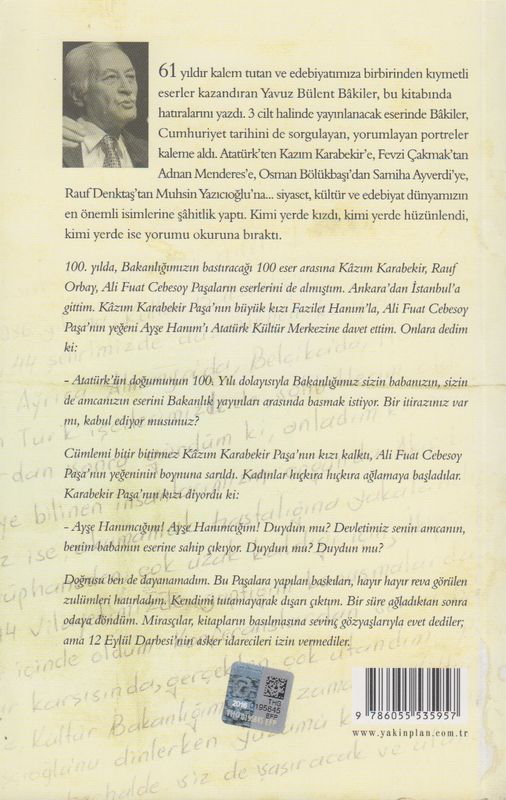 61 yıldır kalem tutan ve edebiyatımıza birbirinden kıymetli
eserler kazandıran Yavuz Bülent Bâkiler, bu kitabında
hatıralarını yazdı. 3 cilt halinde yayınlanacak eserinde Bâkiler,
Cumhuriyet tarihini de sorgulayan, yorumlayan portreler
kaleme aldı. Atatürk’ten Kazım Karabekir’e, Fevzi Çakmak’tan
Adnan Menderes’e, Osman Bölükbaşı’dan Samiha Ayverdi’ye,
Rauf Denktaş’tan Muhsin Yazıcıoğlu’na... siyaset, kültür ve edebiyat dünyamızın
en önemli isimlerine şâhitlik yaptı. Kimi yerde kızdı, kimi yerde hüzünlendi,
kimi yerde ise yorumu okuruna bıraktı.
100. yılda, Bakanlığımızın bastıracağı 100 eser arasına Kâzım Karabekir, Rauf
Orbay, Ali Fuat Cebesoy Paşaların eserlerini de almıştım. Ankara’dan İstanbul’a
gittim. Kâzım Karabekir Paşa’nın büyük kızı Fazilet Hanım’la, Ali Fuat Cebesoy
Paşa’nın yeğeni Ayşe Hanım’ı Atatürk Kültür Merkezine davet ettim. Onlara dedim
ki:
- Atatürk’ün doğumunun 100. Yılı dolayısıyla Bakanlığımız sizin babanızın, sizin
de amcanızın eserini Bakanlık yayınları arasında basmak istiyor. Bir itirazınız var
mı, kabul ediyor musunuz?
Cümlemi bitir bitirmez Kâzım Karabekir Paşa’nın kızı kalktı, Ali Fuat Cebesoy
Paşa’nın yeğeninin boynuna sarıldı. Kadınlar hıçkıra hıçkıra ağlamaya başladılar.
Karabekir Paşa’nın kızı diyordu ki:
- Ayşe Hanımcığım! Ayşe Hanımcığım! Duydun mu? Devletimiz senin amcanın,
benim babamın eserine sahip çıkıyor. Duydun mu? Duydun mu?
Doğrusu ben de dayanamadım. Bu Paşalara yapılan baskıları, hayır hayır reva görülen
zulümleri hatırladım. Kendimi tutamayarak dışarı çıktım. Bir süre ağladıktan sonra
odaya döndüm. Mirasçılar, kitapların basılmasına sevinç gözyaşlarıyla evet dediler;
ama 12 Eylül Darbesi’nin asker idarecileri izin vermediler.
2016
THG
195845
EFP
THG 195845 EFP
9 786055 535957
www.yakinplan.com.tr